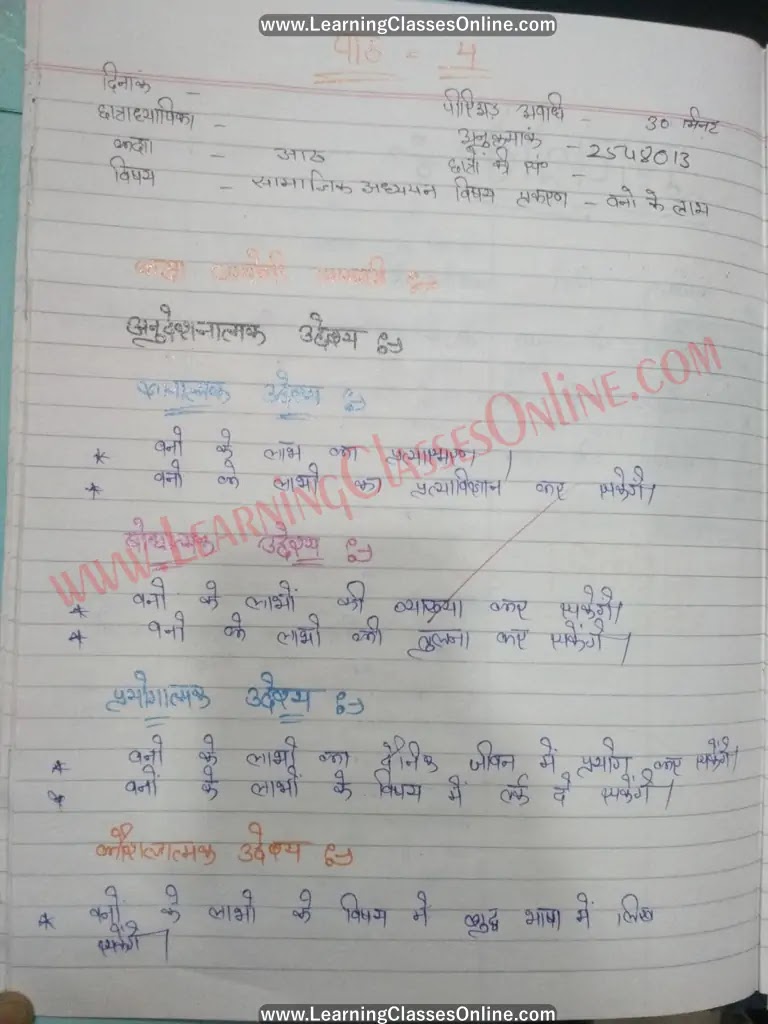 www.LearningClassesOnline.com
पाठ = 4
दिनांक -
छात्राध्यापिका - पीरिअड अवधि - 30 मिनट
अनुक्रमांक - 2548013
कक्षा - आठ छात्रों की सं -
विषय - सामाजिक अध्ययन विषय प्रकरण - वनो के लाभ
कक्षा
अनुदेशनात्मक उद्देश्य :-
ज्ञानात्मक उद्देश्य :-
* वनो के लाभ का प्रत्यास्मरण।
* वनो के लाभो का प्रत्याभिज्ञान कर सकेगे।
www.LearningClassesOnline.com
बोधात्मक उद्देश्य :-
* वनो के लाभों की व्याख्या कर सकेगे।
* वनो के लाभो की तुलना कर सकेंगे।
प्रयोगात्मक उद्देश्य :-
* वनो के लाभो का दैनिक जीवन में प्रयोग कर सकेंगे।
* वनों के लाभों के विषय में र्तक दे सकेंगे।
कौशलात्मक उद्देश्य :-
* वनों के लाभो के विषय मे शुद्ध भाषा में लिख
सकेंगे।
www.LearningClassesOnline.com